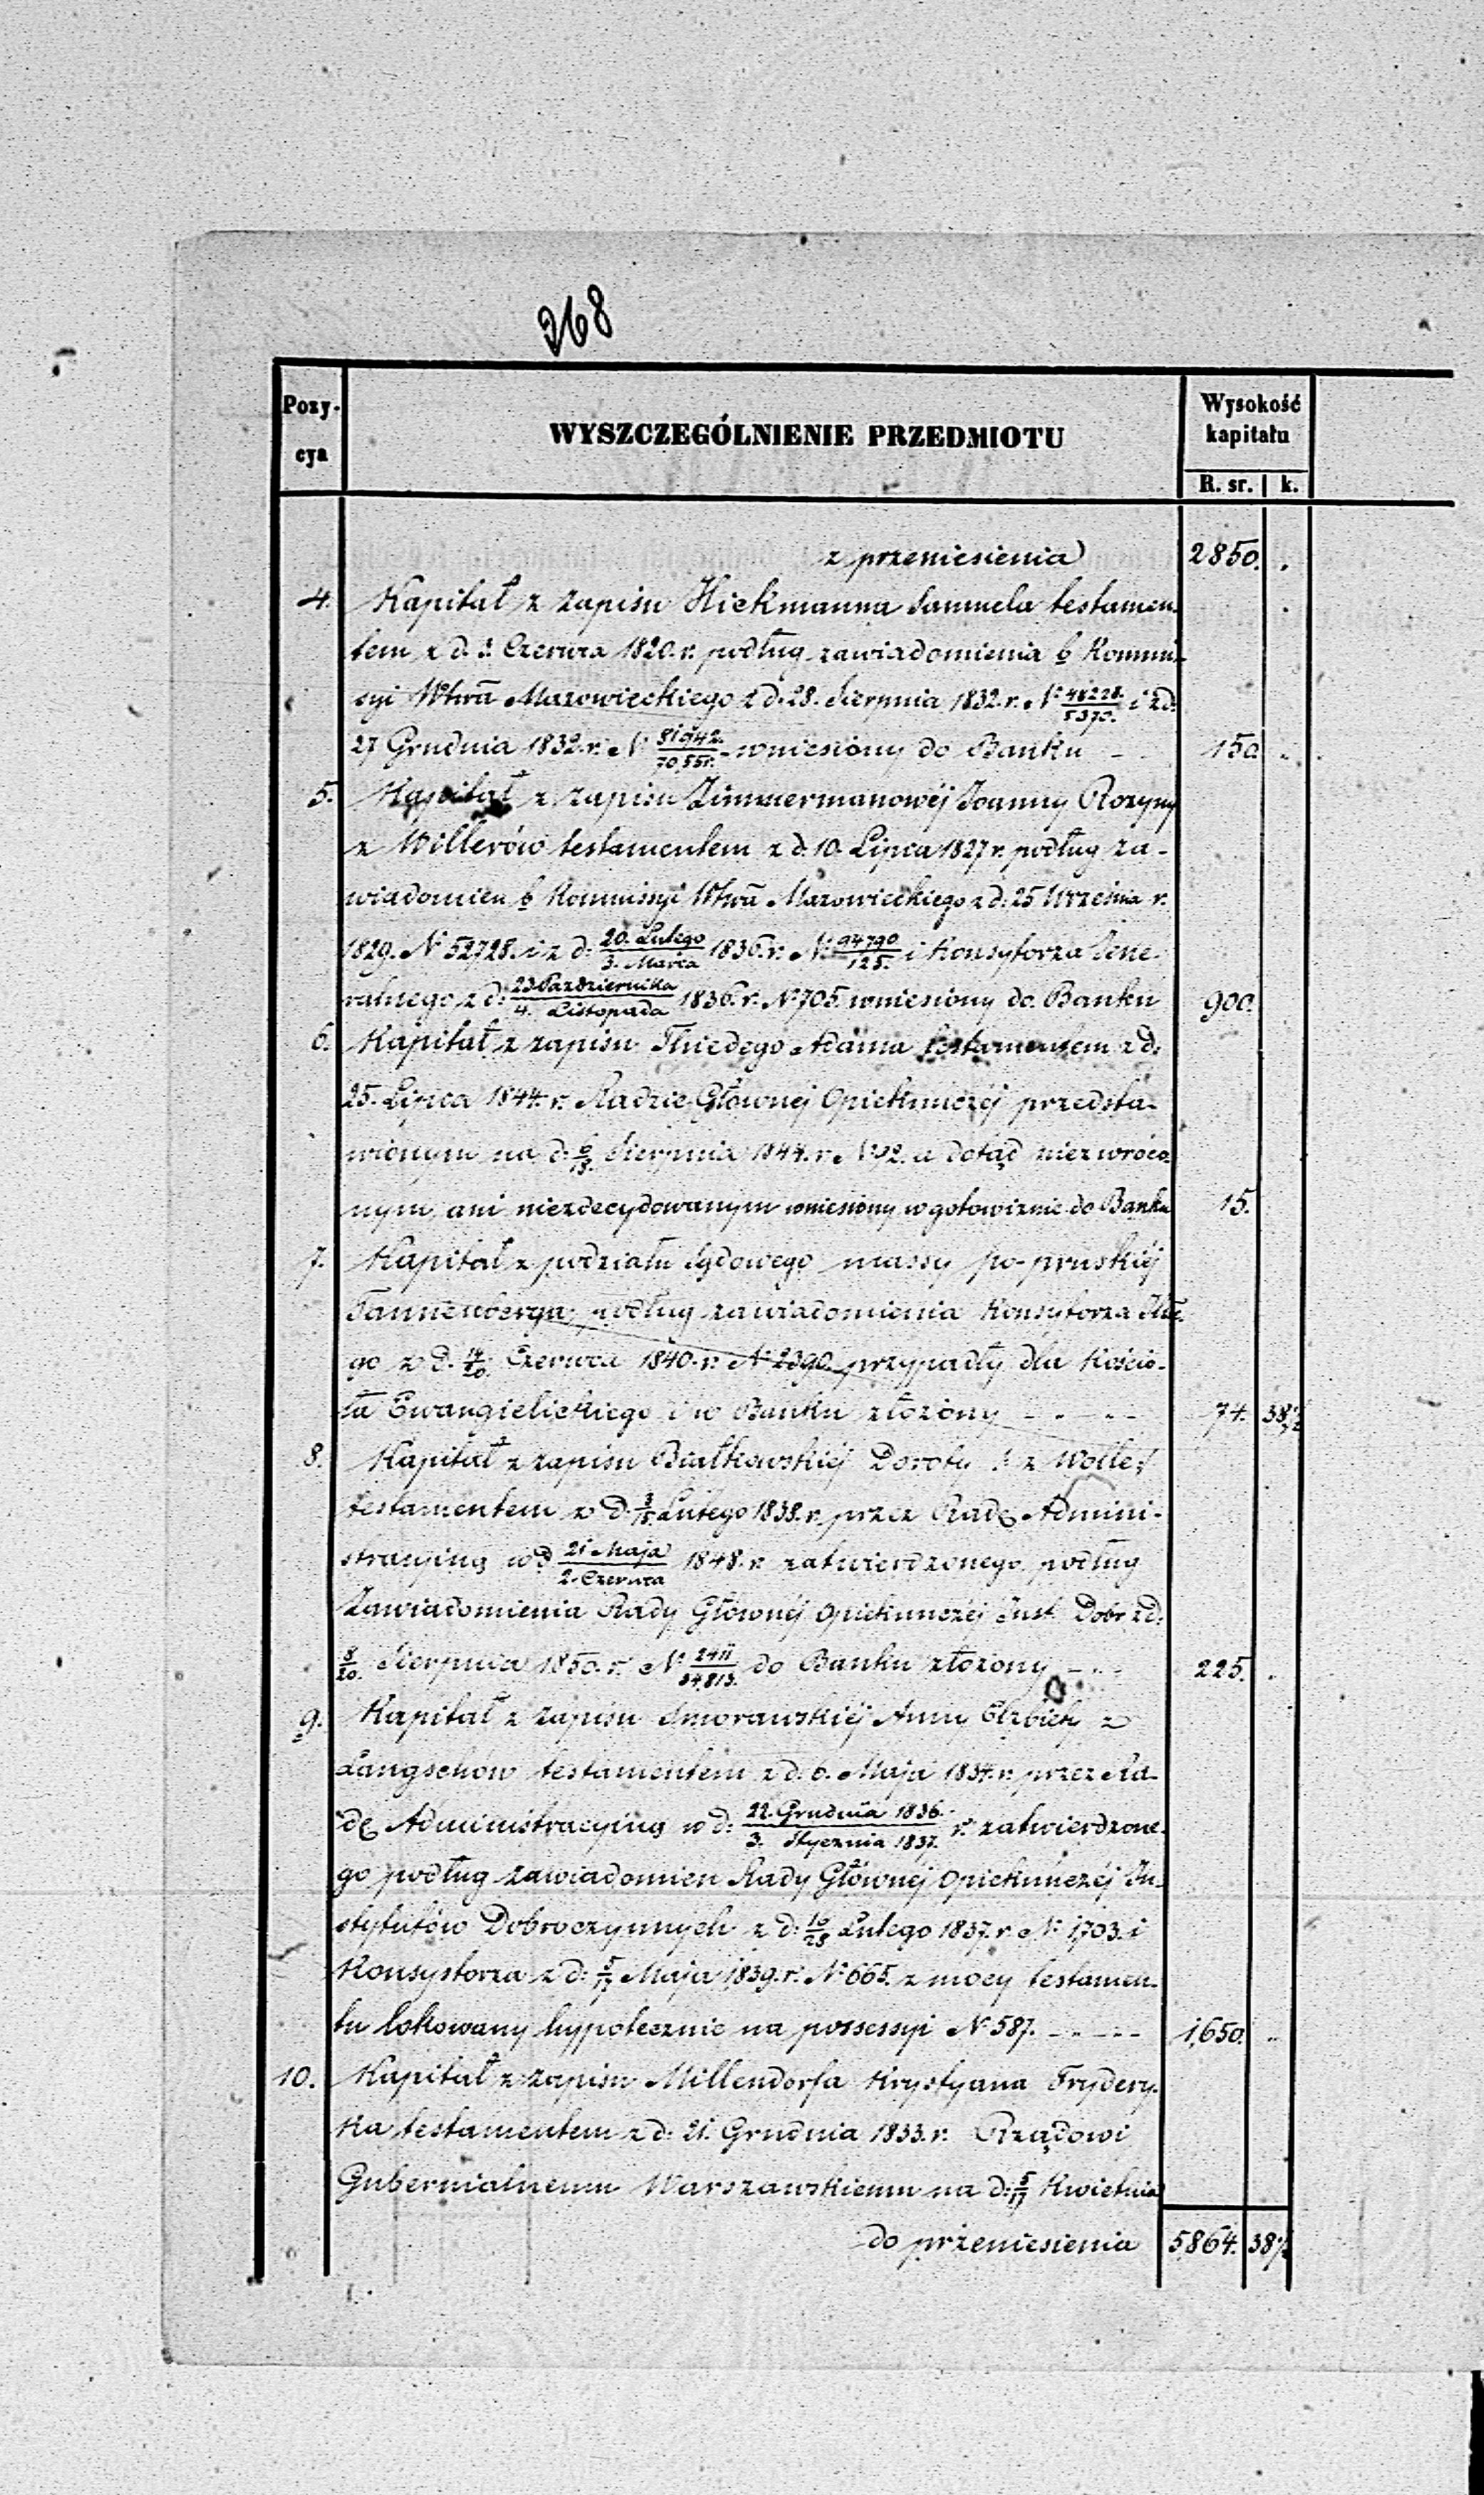 268
Pozy-
cya
WYSZCZEGÓLNIENIE PRZEDMIOTU
Wysokość
kapitału
R. sr. k.
z przeniesienia 2850. .
4. Kapitał z zapisu Hickmanna Samuela testamen-
tem z d. Czerwca 1820. r. podług zawiadomienia b Kommi-
syi Wtwa Mazowieckiego z d. 28. Sierpnia 1832. r. N. 48228./5370. i z d.
27 Grudnia 1832. r. N. 81942./70,551. wniesiony do Banku - 150. ..
5. Kapitał z zapisu Zimmermanowéj Joanny Rozyny
z Willerów testamentem z d. 10. Lipca 1827 r. podług za-
wiadomien b Kommissyi Wtwa Mazowieckiego z d. 25 Września r.
1829. N 52728. i z d. 20. Lutego/3. Marca 1836. r. N. 94790/125. i Konsystorza Jene-
ralnego z d. 23 Października/4. Listopada 1836. r. N. 705. wniesiony do Banku 900.
6. Kapitał z zapisu Thiedego Adama testamentem z d.
25. Lipca 1844. r. Radzie Głównéj Opiekunczéj przedsta-
wionym na d. 6/18. Sierpnia 1844. r. N. 92. a dotąd niezwróco-
nym, ani niezdecydowanym wniesiony w gotowiznie do Banku 15.
7. Kapitał z podziału Sądowego massy po-pruskiéj
Tannenberga podług zawiadomienia Konsystorza
go z d. Czerwca 1840. r. N. 2390. przypadły dla Kościo-
ła Ewangielickiego i w Banku złożony - - - - 74. 38½
8. Kapitał z zapisu Białkowskiéj Doroty /: z Wolle:/
testamentem z d. 3/15. Lutego 1838. r. przez Radę Admini-
stracyiną w d. 21 Maja/2. Czerwca 1848. r. zatwierdzonego podług
Zawiadomienia Rady Głównéj Opiekunczéj Inst. Dobr. z d.
8/20. Sierpnia 1850. r. N. 2411/34,813. do Banku złożony - - - 225. .
9. Kapitał z zapisu Smorawskiéj Anny Elżbiety z
Langschów testamentem z d. 6. Maja 1834. r. przez Ra-
dę Administracyiną w d. 22. Grudnia 1836./3. Stycznia 1837. r. zatwierdzone-
go podług zawiadomien Rady Głównéj Opiekunczéj In-
stytutów Dobroczynnych z d. 16/28 Lutego 1837. r. N. 1703. i
Konsystorza z d. 5/17 Maja 1839. r. N. 665. z mocy testamen-
tu lokowany hypotecznie na possessyi N. 587. - - - - 1,650. ..
10. Kapitał z zapisu Millendorfa Krystyana Frydery-
ka testamentem z d. 21. Grudnia 1833. r. Rządowi
Gubernialnemu Warszawskiemu na d. 5/17 Kwietnia
do przeniesienia 5864. 38½